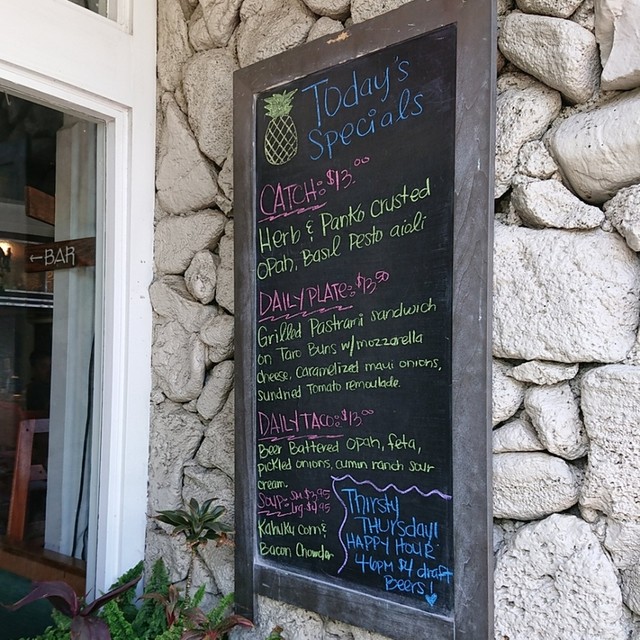 Today's
Specials
CATCH: $13.00
Herb & Panko Crusted
Opah, Basil Pesto aioli
DAILY PLATE: $13.50
Grilled Pastrami sandwich
on Taro Buns w/mozzarella
cheese, caramelized maui onions,
sundried Tomato remoulade.
DAILY TACO: $13.00
Beer Battered Opah, feta,
pickled onions, cumin ranch sour
cream.
SOUP: Sm $3.95
Lrg $4.95
Kahuku Corn &
Bacon Chowder
Thirsty
THURSDAY!
HAPPY HOUR
4-6PM $4 draft
Beers
←BAR